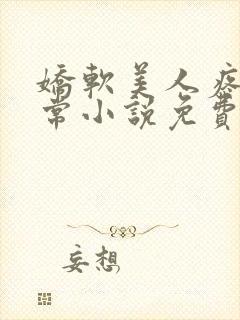 嬌軟美人疼
常小說免費
妄想